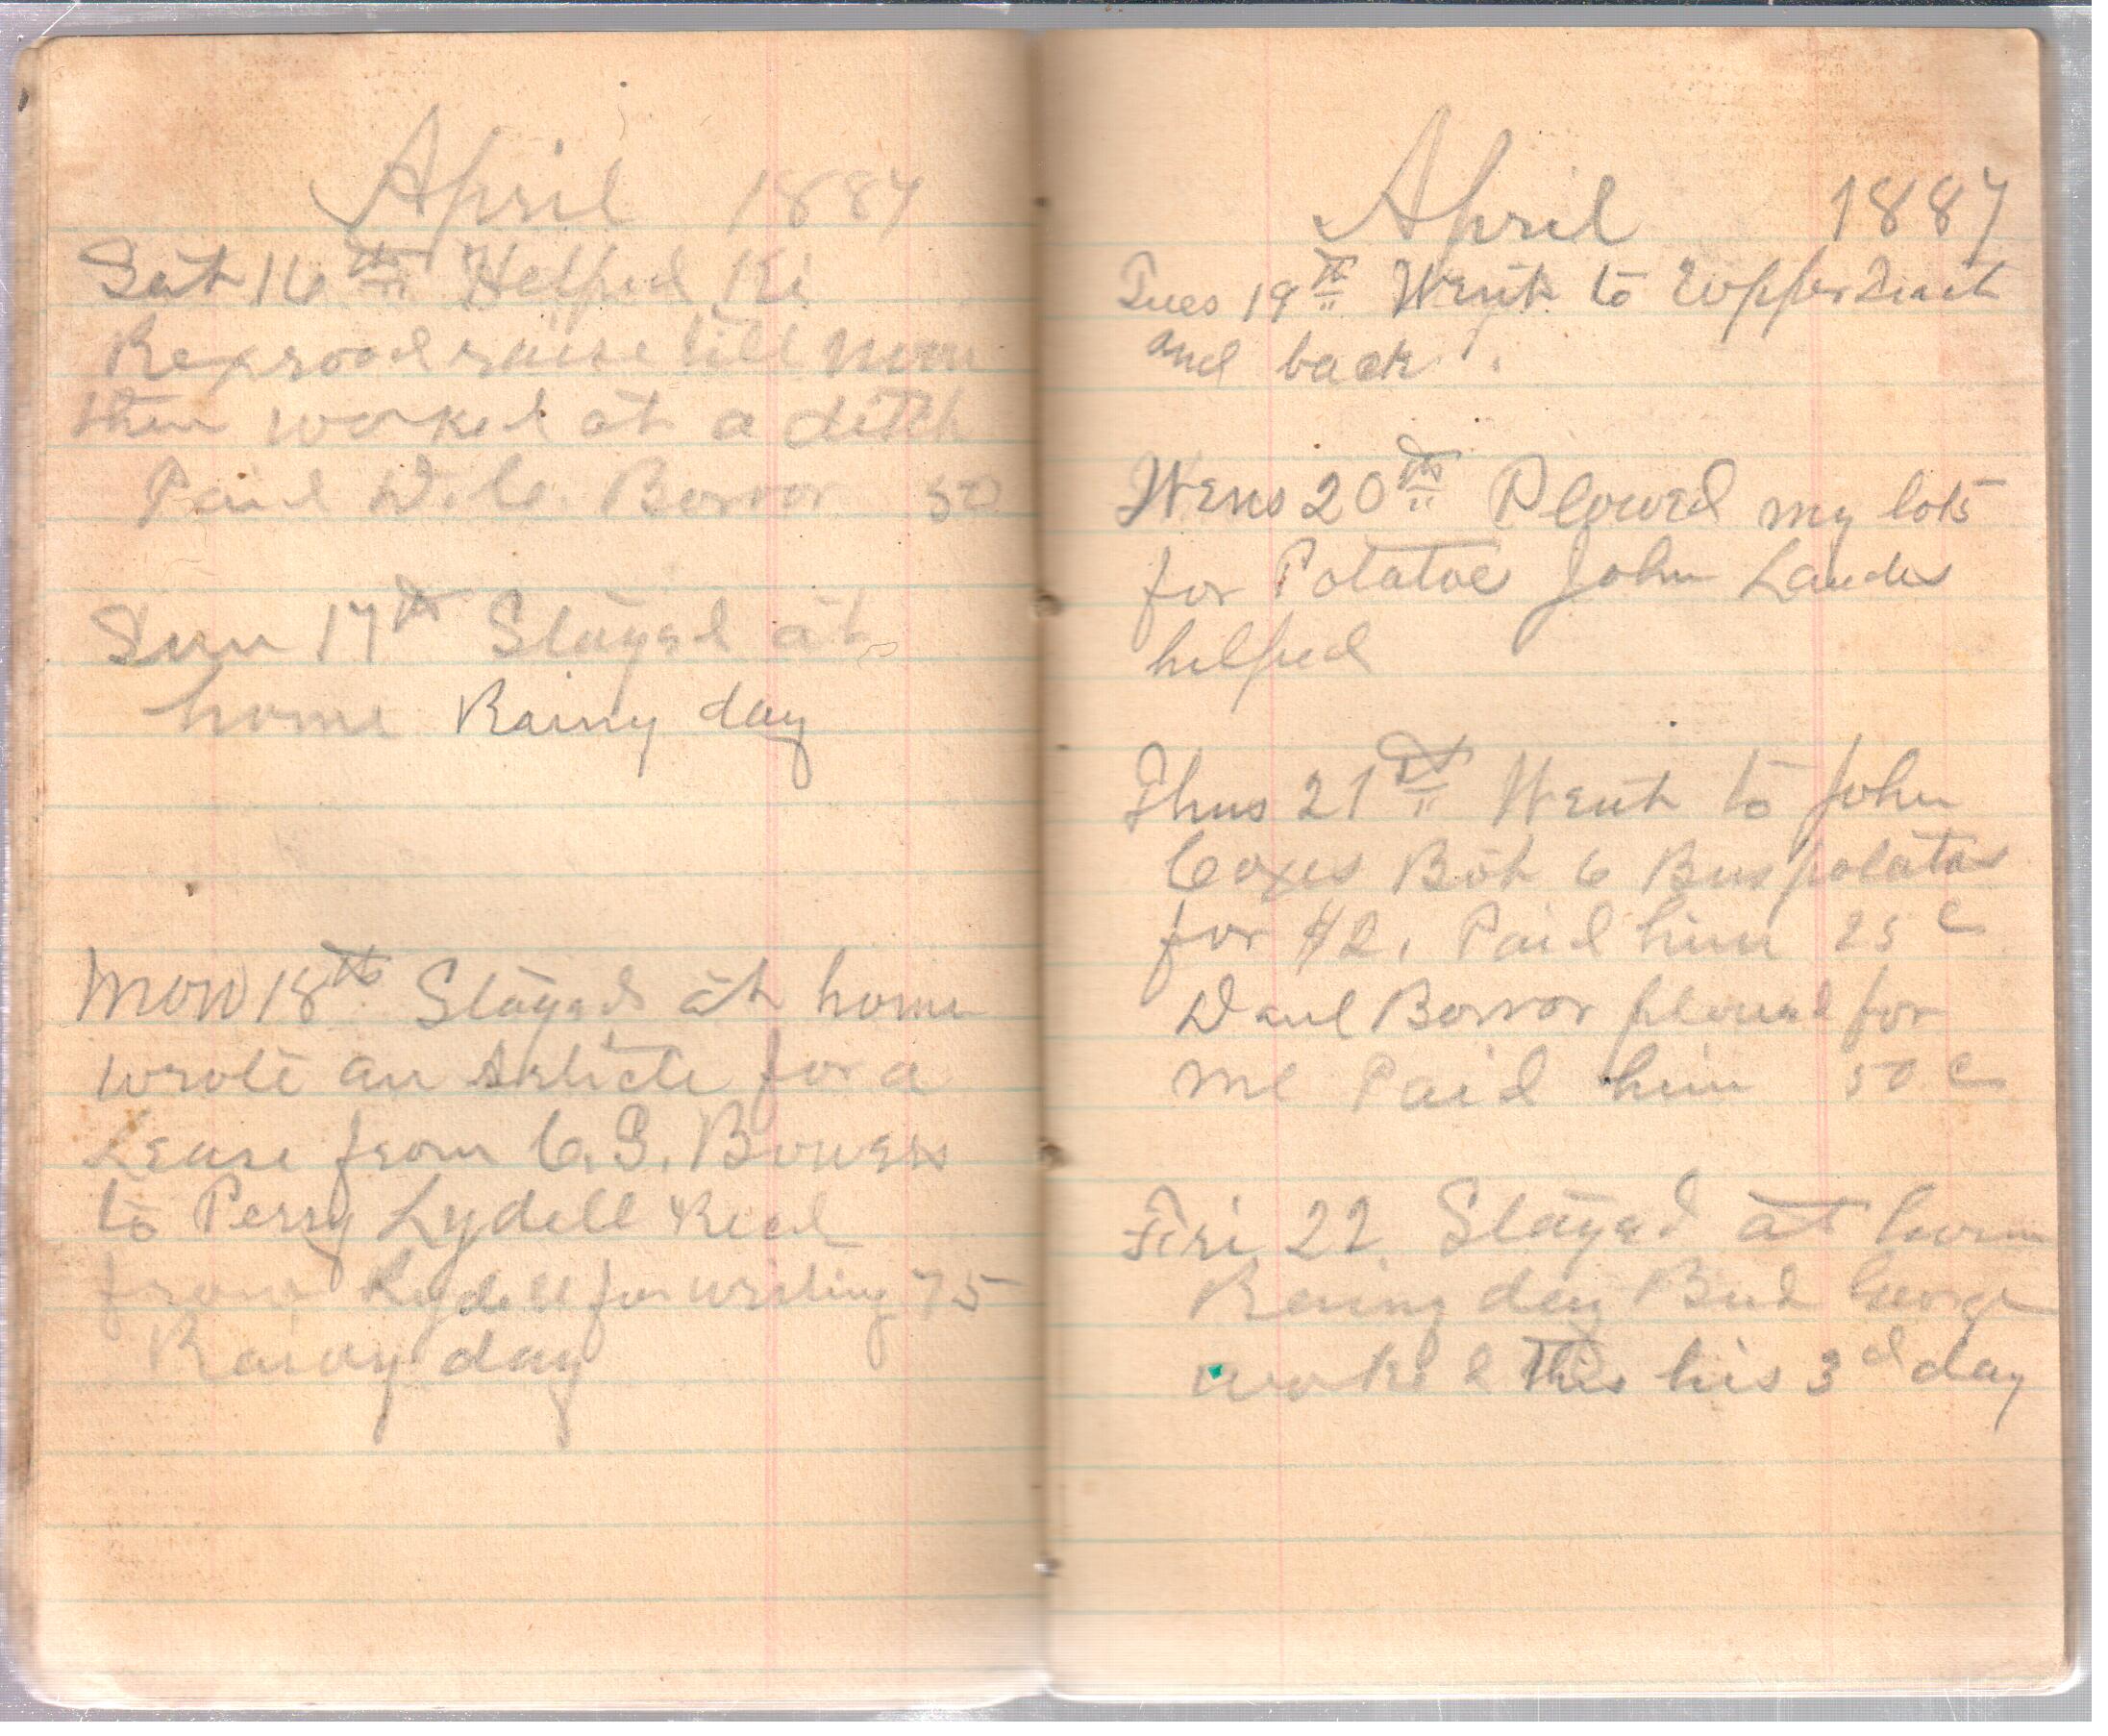 April 1887
Sat 16th Helped Ki
Rexroad raise till noon
then worked at a ditch
Paid D. C. Borror 50
Sun 17th Stayed at
home Rainy day
Mon 18th Stayed at home
wrote an Article for a
Lease from C. G. Bowers
to Perry Lydell Recd
from Lydell for writing 75
Rainy day
April 1887
Tues 19th Went to Upper
and back.
Wens 20th Plowed my lots
for Potatoe John Landes
helped
Thus 21st Went to John
Coxes Bot 6 Bus potatoes
for $2. Paid him 25 c
Danl Borror plowed for
me Paid him 50 c
Fri 22 Stayed at home
Rainy day Bud George
worked This his 3d day